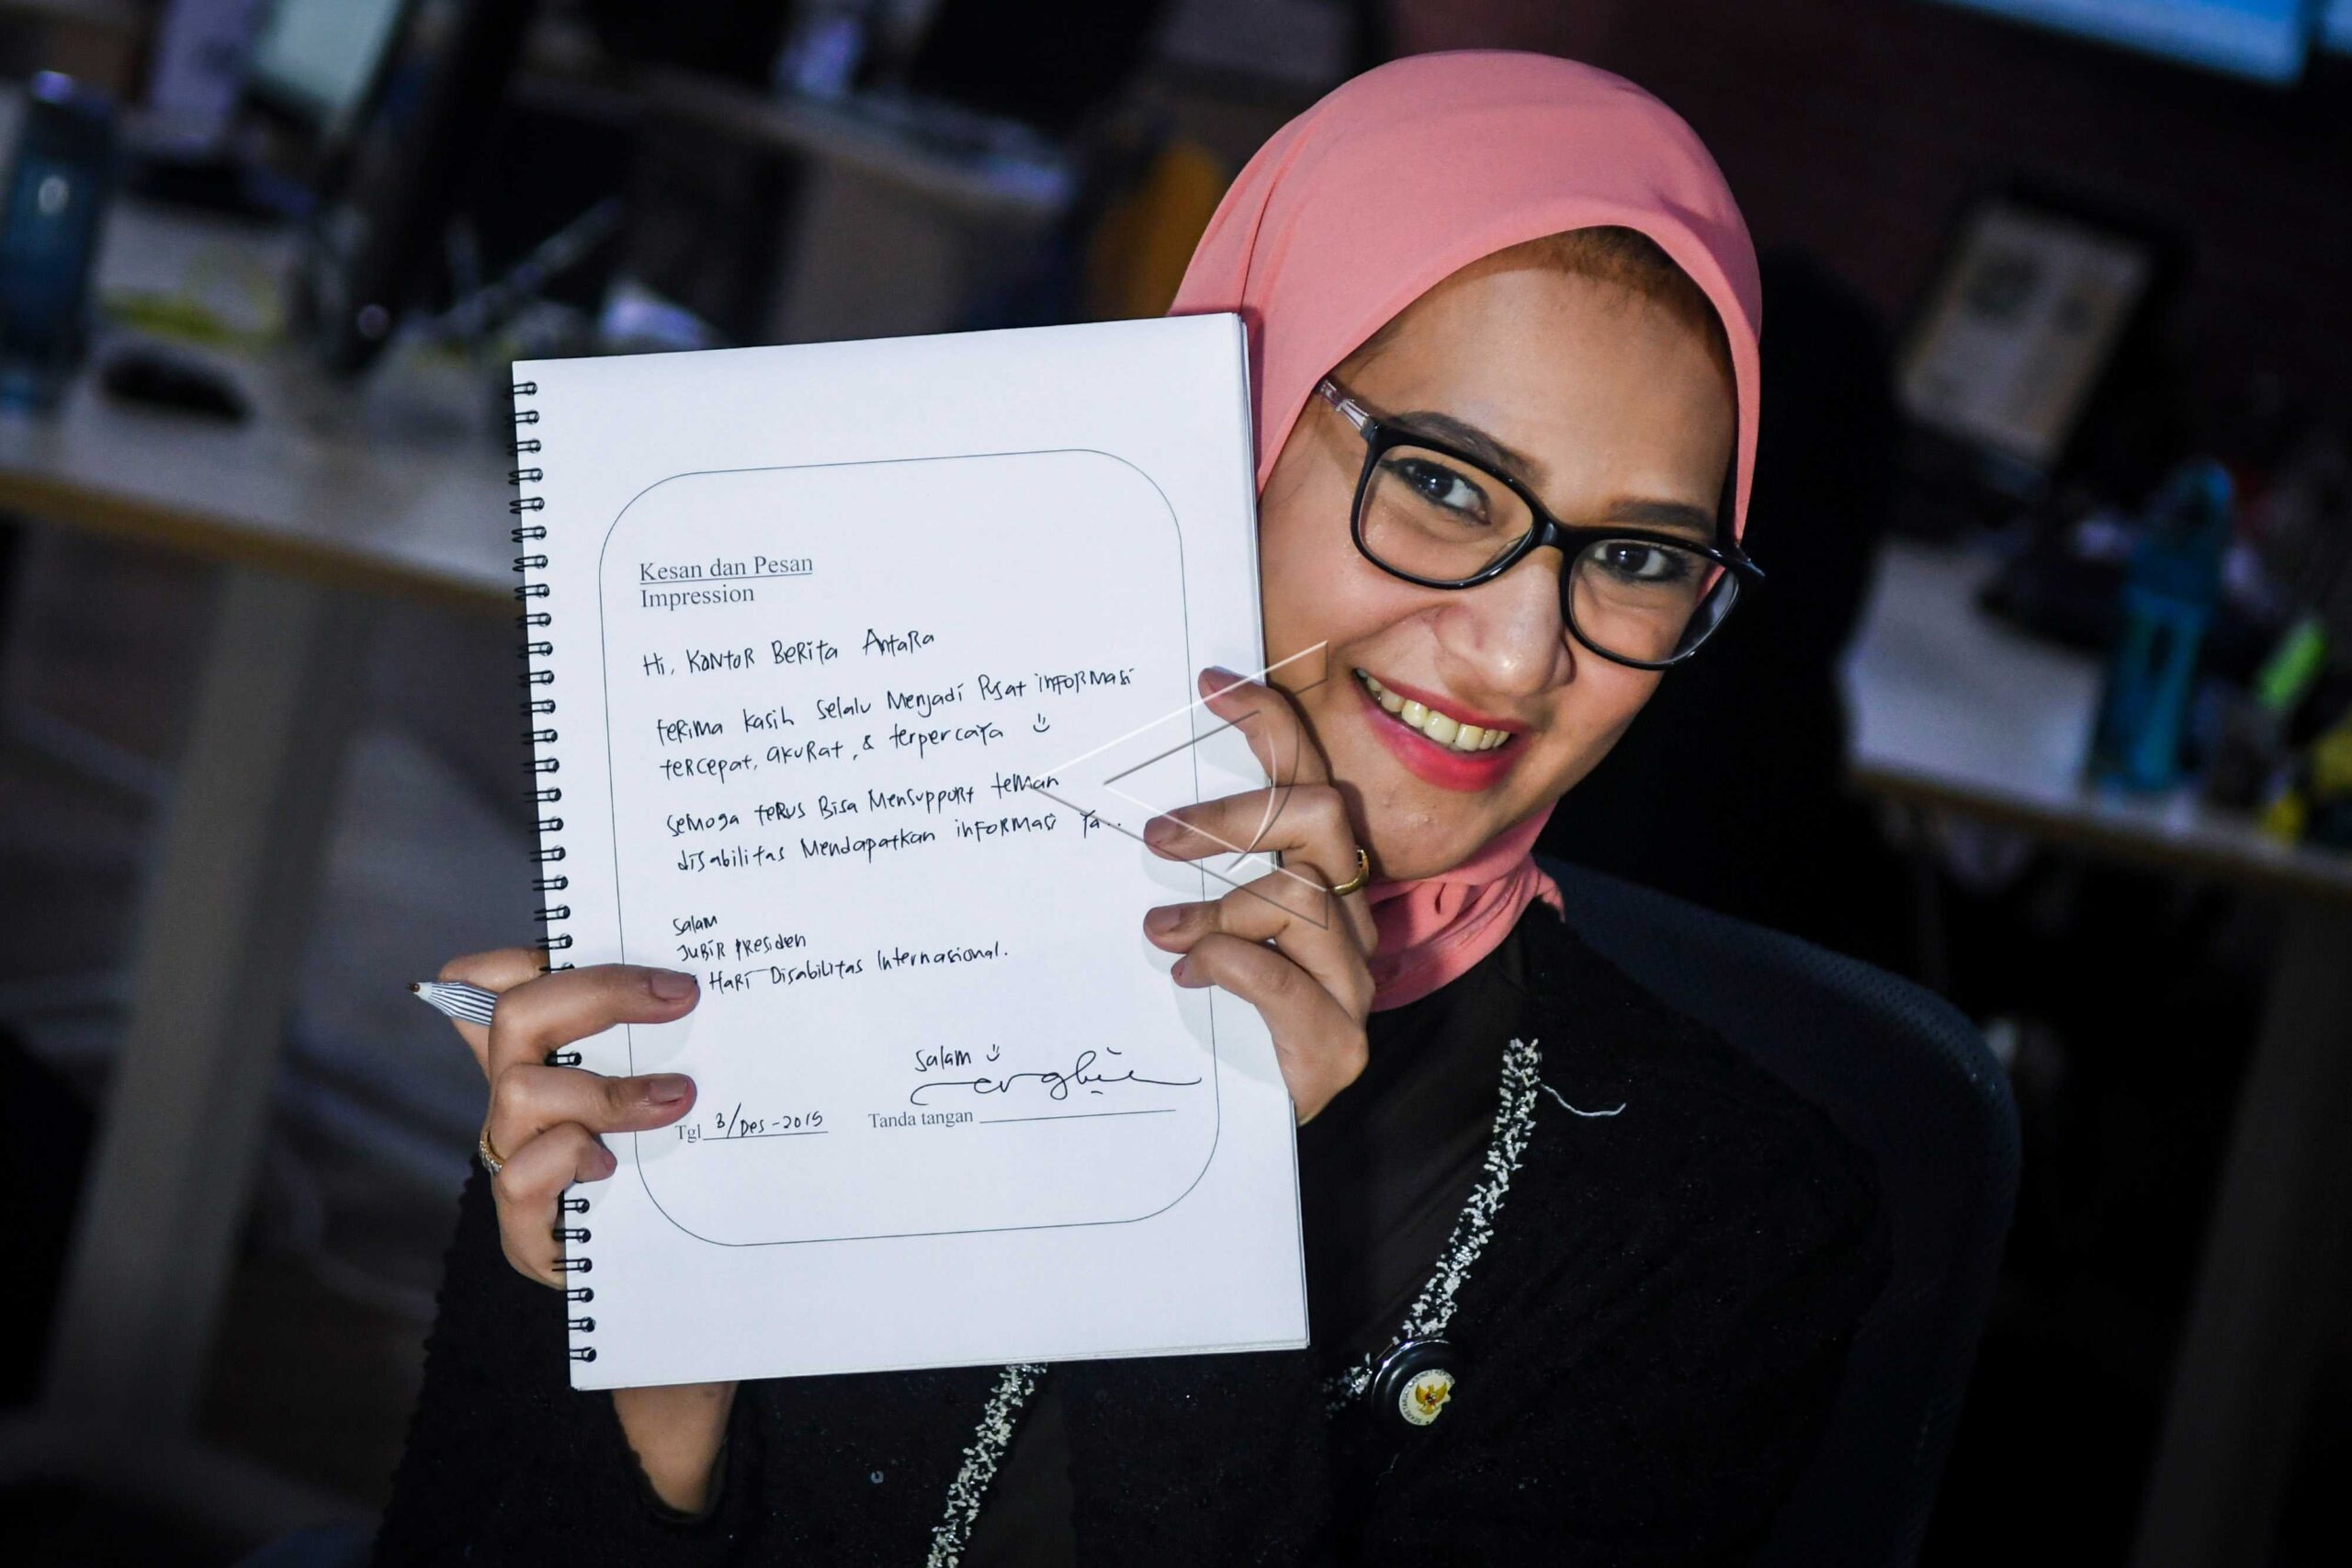 Kesan dan Pesan
Impression
Hi, Kantor Berita Antara
terima kasih selalu Menjadi Pusat informasi
tercepat, akurat, & terpercaya
semoga terus Bisa Mensupport teman
disabilitas Mendapatkan informasi ya..
Salam
Jubir presiden
Hari Disabilitas Internasional.
Salam
Tgl 3/Des-2019 Tanda tangan